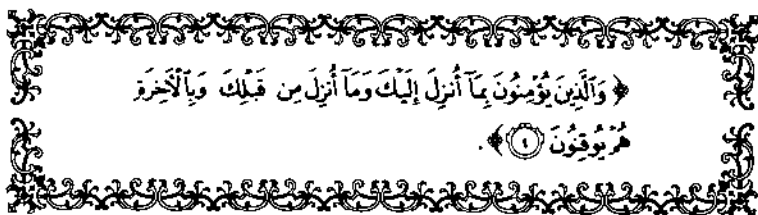 ﴿ وَٱلَّذِينَ يُؤْمِنُونَ بِمَآ أُنزِلَ إِلَيْكَ وَمَآ أُنزِلَ مِن قَبْلِكَ وَبِٱلْأَخِرَةِ
هُمْ يُوقِنُونَ ٤ ﴾.